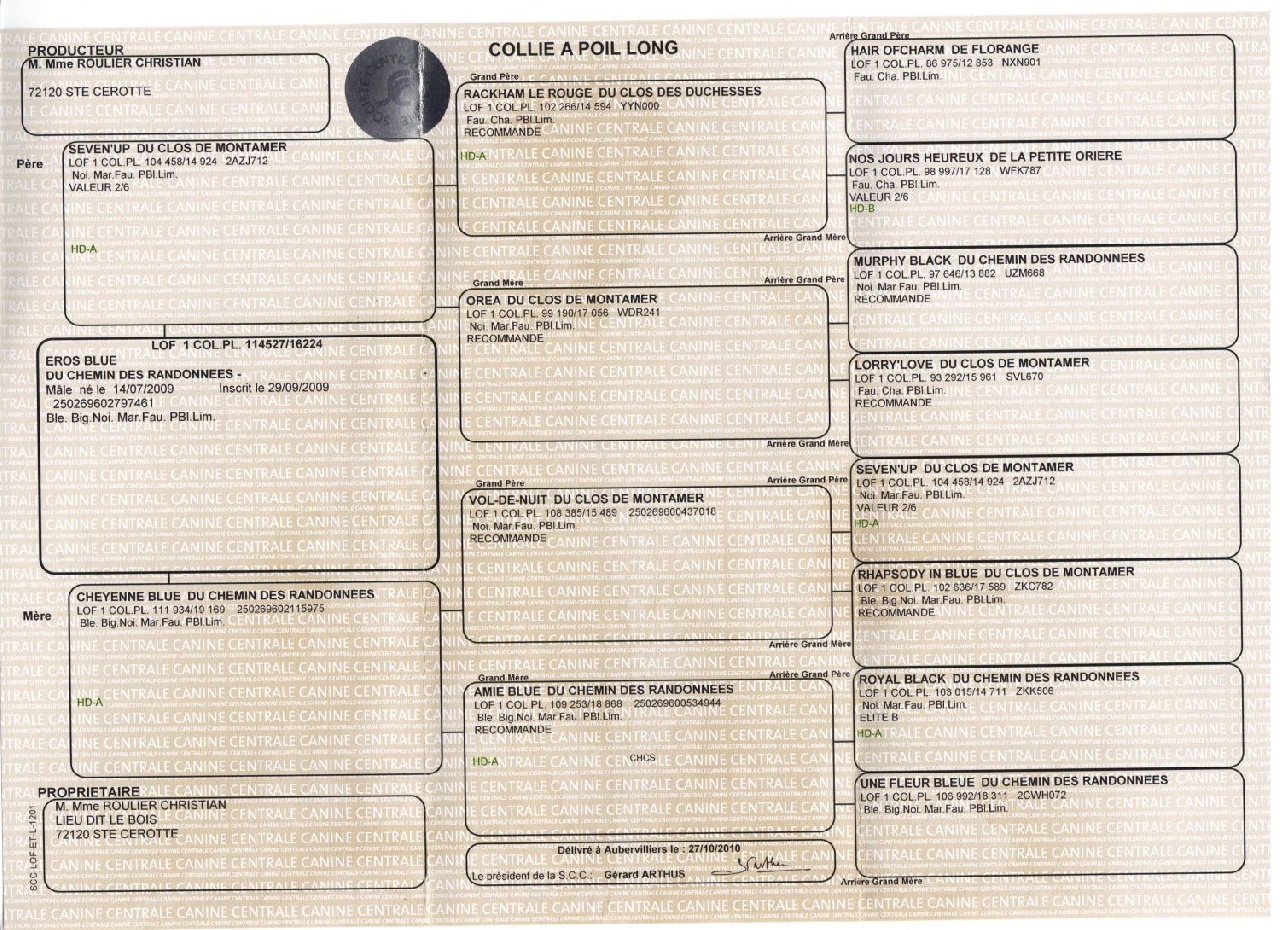 COLLIE A POIL LONG
PRODUCTEUR
M. Mme ROULIER CHRISTIAN
72120 STE CEROTTE
Père
SEVEN'UP DU CLOS DE MONTAMER
LOF 1 COL.PL. 104 458/14 924 2AZJ712
Noi. Mar.Fau. PBl.Lim.
VALEUR 2/6
HD-A
LOF 1 COL.PL. 114527/16224
EROS BLUE
DU CHEMIN DES RANDONNEES -
Mâle né le 14/07/2009 Inscrit le 29/09/2009
250269602797461
Ble. Big.Noi. Mar.Fau. PBl.Lim.
Mère
CHEYENNE BLUE DU CHEMIN DES RANDONNEES
LOF 1 COL.PL. 111 934/19 169 250269602115975
Ble. Big.Noi. Mar.Fau. PBl.Lim.
HD-A
PROPRIETAIRE
M. Mme ROULIER CHRISTIAN
LIEU DIT LE BOIS
72120 STE CEROTTE
SCC LOF ET-L-1201
Grand Père
RACKHAM LE ROUGE DU CLOS DES DUCHESSES
LOF 1 COL.PL. 102 266/14 594 YYN000
Fau. Cha. PBl.Lim.
RECOMMANDE
HD-A
Grand Mère
OREA DU CLOS DE MONTAMER
LOF 1 COL.PL. 99 190/17 056 WDR241
Noi. Mar.Fau. PBl.Lim.
RECOMMANDE
Grand Père
VOL-DE-NUIT DU CLOS DE MONTAMER
LOF 1 COL.PL. 108 385/15 489 250269600437016
Noi. Mar.Fau. PBl.Lim.
RECOMMANDE
Grand Mère
AMIE BLUE DU CHEMIN DES RANDONNEES
LOF 1 COL.PL. 109 253/18 868 250269600534944
Ble. Big.Noi. Mar.Fau. PBl.Lim.
RECOMMANDE
HD-A
CHCS
Délivré à Aubervilliers le : 27/10/2010
Le président de la S.C.C.: Gérard ARTHUS
Arrière Grand Père
HAIR OFCHARM DE FLORANGE
LOF 1 COL.PL. 86 975/12 853 NXN901
Fau. Cha. PBl.Lim.
NOS JOURS HEUREUX DE LA PETITE ORIERE
LOF 1 COL.PL. 98 997/17 128 WFK787
Fau. Cha. PBl.Lim.
VALEUR 2/6
HD-B
Arrière Grand Mère
Arrière Grand Père
MURPHY BLACK DU CHEMIN DES RANDONNEES
LOF 1 COL.PL. 97 646/13 882 UZM668
Noi. Mar.Fau. PBl.Lim.
RECOMMANDE
LORRY'LOVE DU CLOS DE MONTAMER
LOF 1 COL.PL. 93 292/15 961 SVL670
Fau. Cha. PBl.Lim.
RECOMMANDE
Arrière Grand Mère
Arrière Grand Père
SEVEN'UP DU CLOS DE MONTAMER
LOF 1 COL.PL. 104 458/14 924 2AZJ712
Noi. Mar.Fau. PBl.Lim.
VALEUR 2/6
HD-A
RHAPSODY IN BLUE DU CLOS DE MONTAMER
LOF 1 COL.PL. 102 636/17 589 ZKC782
Ble. Big.Noi. Mar.Fau. PBl.Lim.
RECOMMANDE
Arrière Grand Mère
Arrière Grand Père
ROYAL BLACK DU CHEMIN DES RANDONNEES
LOF 1 COL.PL. 103 015/14 711 ZKK506
Noi. Mar.Fau. PBl.Lim.
ELITE B
HD-A
UNE FLEUR BLEUE DU CHEMIN DES RANDONNEES
LOF 1 COL.PL. 106 992/18 311 2CWH072
Ble. Big.Noi. Mar.Fau. PBl.Lim.
Arrière Grand Mère